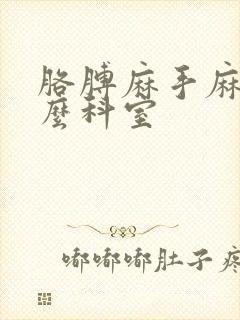 胳膊麻手麻
麽科室
嘟嘟嘟肚子疼